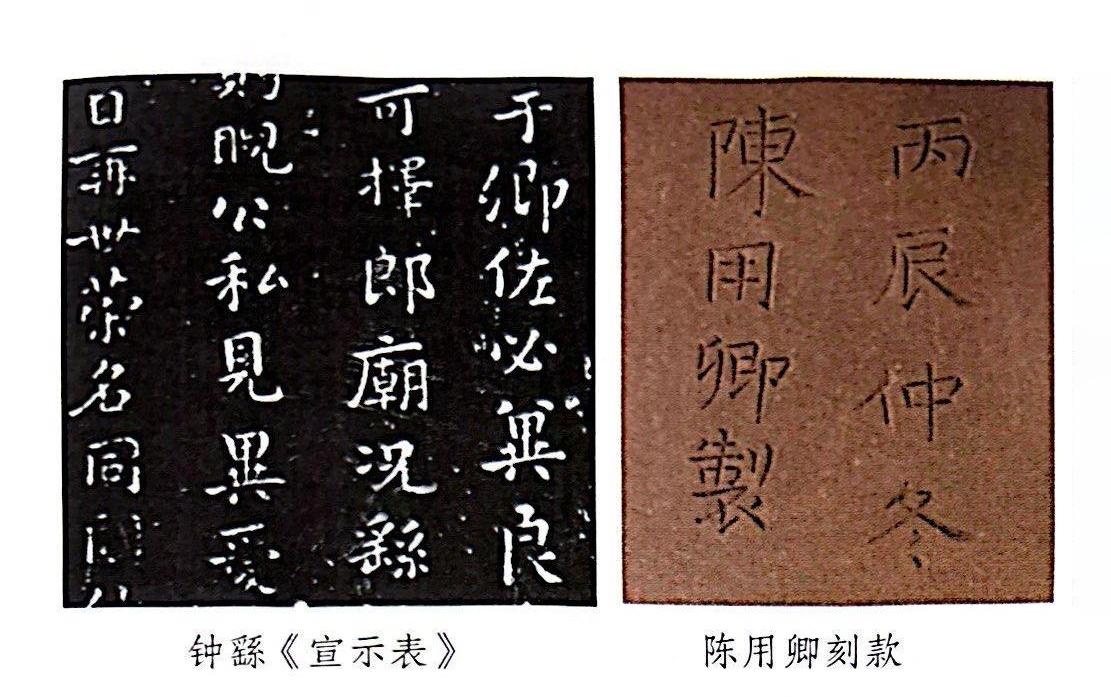 于卿佐必異良
可擇郎廟況繇
則晚公私見異愛
日再世榮名同國休
丙辰仲冬
陳用卿製
钟繇《宣示表》
陈用卿刻款